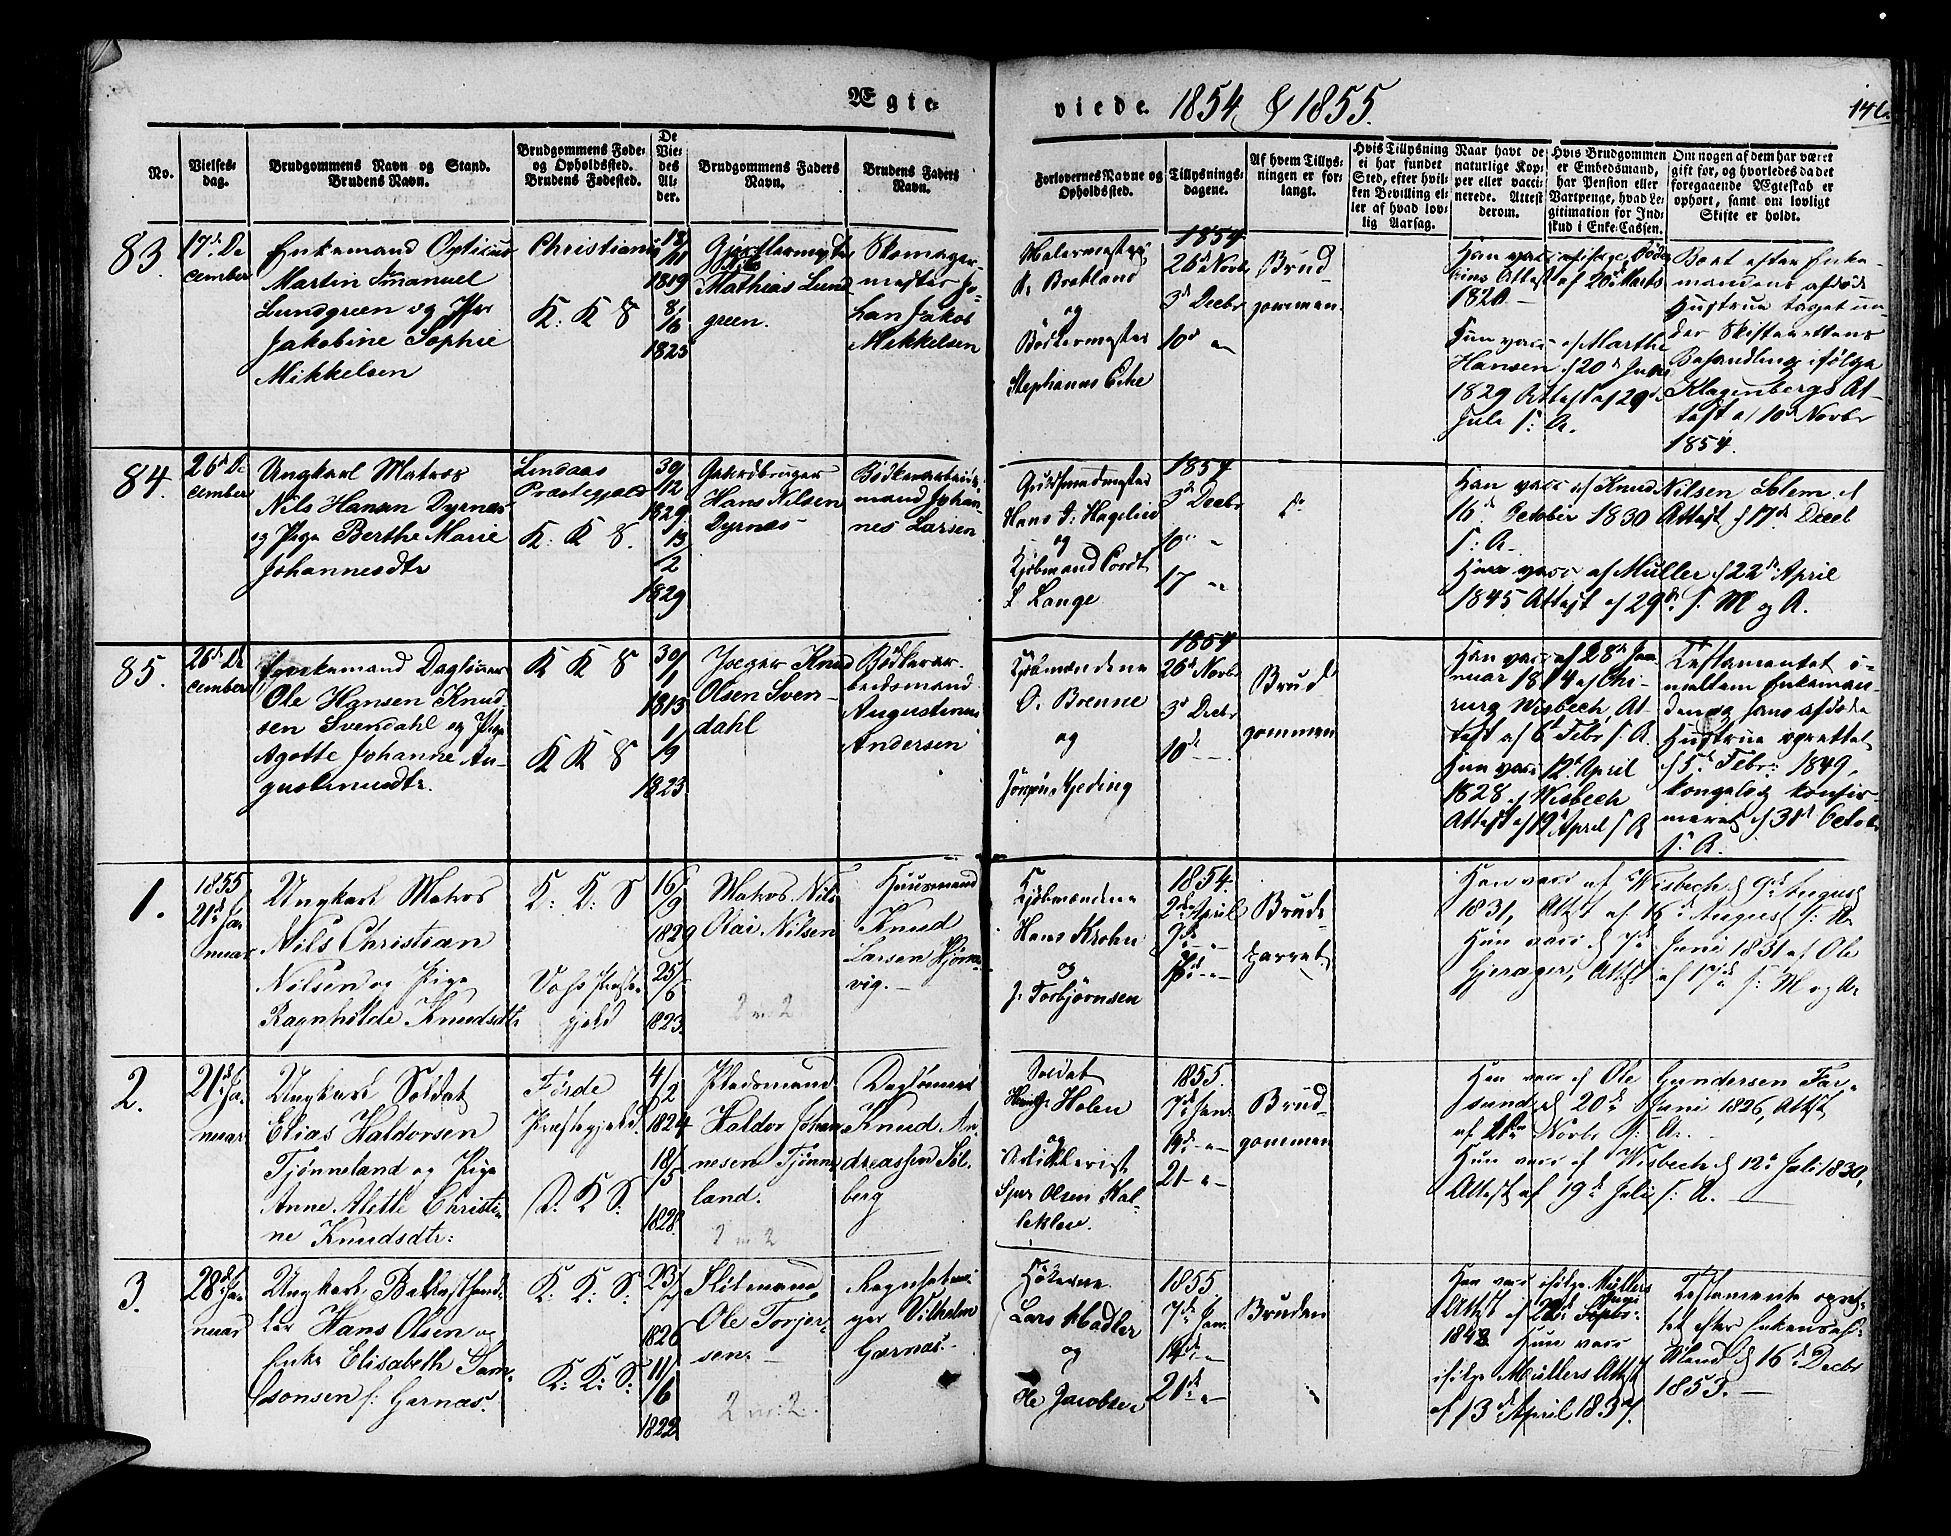 Ægte
viede 1854 & 1855.
146
No.
Vielses-
dag.
Brudgommens Navn og Stand.
Brudens Navn.
Brudgommens Føde-
og Opholdssted.
Brudens Fødested.
De
Vie-
des
Al-
der.
Brudgommens Faders
Navn.
Brudens Faders
Navn.
Forlovernes Navne og
Opholdssted.
Tillysnings-
dagene.
Af hvem Tillys-
ningen er for-
langt.
Hvis Tillysning
ei har fundet
Sted, efter hvil-
ken Bevilling el-
ler af hvad lov-
lig Aarsag.
Naar havt de
naturlige Kop-
per eller vacci-
nerede. Attest
derom.
Hvis Brudgommen
er Embedsmand,
har Pension eller
Vartpenge, hvad Le-
gitimation for Ind-
skud i Enke-Cassen.
Om nogen af dem har været
gift før, og hvorledes da det
foregaaende Ægteskab er
ophørt, samt om lovligt
Skifte er holdt.
83.
17de De
cember
Enkemand Opticus
Martin Emanuel
Lundgreen og Pige
Jakobine Sophie
Mikkelsen
Christiania
K: K S
18/
11
1819
8/
16
1825
Gjørtlermester
Mathias Lund
green.
Skomager-
mester Jo-
han Jakob
Mikkelsen
Malermester
Brekland
og
Bødkermester
Stephanus Eche
1854
26de Novbr
3de Decbr
10de "
Brud
gommen
Han vacc ifølge
Attest af 20de Marts
1820 –
Hun vacc af Marthe
Hansen d 20de Juli
1829 Attest af 29de
Juli s: A.
Boet efter Enke-
mandens afdøde
Hustrue taget un-
der Skifterettens
Behandling ifølge
Klagenbergs At-
test af 10de Novbr
1854.
84.
26de De
cember
Ungkarl Matros
Nils Hansen Dyrnæs
og Pige Berthe Marie
Johannesdtr
Lindaas
Præstegjeld
K: K S.
30/
12
1829
13
2
1829
Gaardbruger
Hans Nilsen
Dyrnæs
Bødkerarbeids-
mand Johan-
nes Larsen
Guldsmedmester
Hans J: Hagelin
og
Kjøbmand Cordt
L Lange
1854
3de Decbr
10 "
17 "
do
Han vacc af Knud Nilsen Solem d
16de October 1830 Attest d 17de Decb
s: A.
Hun vacc af Müller d 22de April
1845 Attest af 29de s. M og A.
85.
26de De
cember
Enkemand Dagløner
Ole Hansen Knud-
sen Svendahl og Pige
Agotte Johanne Au-
gustinusdtr.
K K S
K K S
30/
1
1813
1/
9
1823
Jæger Knud
Olsen Sven-
dahl
Bødkerar-
beidsmand
Augustinus
Andersen
Kjøbmændene
O. Brenne
og
Jørgen Kjeding
1854
26de Novbr
3de Decbr
10de –
Brud
gommen
Han vacc af 28de Ja-
nuar 1814 af Chi-
rurg Wisbech, At-
test af 6te Febr s A.
Hun vacc 12te April
1828 af Wisbech
Attest af 19de April s A
Testamentet i-
mellem Enkeman-
den og hans afdøde
Hustrue oprettet
d 5te Febr: 1849,
kongelig konfir-
meret d 31te Octobr
s. A.
1.
1855
21de Ja-
nuar
Ungkarl Matros
Nils Christian
Nilsen og Pige
Ragnhilde Knudsdtr
K: K: S
Vos Præste-
gjeld
16/
9
1829
25/
6
1823.
Matros Nils
Olai Nilsen
2 v. 2
Huusmand
Knud
Larsen
vig. –
Kjøbmændene
Hans Krohn
og
J. Torbjørnsen
1854.
2den April
9de
16de – " –
Brude
parret
Han vacc af Wisbech d 9de August
1831, Attst af 16de August s: A
Hun vacc d 7de Juni 1831 af Ole
Gjerager, Attst af 17de s: M og A.
2.
21de Ja-
nuar
Ungkarl Soldat
Elias Haldorsen
Tjønneland og Pige
Anne Alette Christi-
ne Knudsdtr:
Førde
Præstegjeld.
D. K S:
4/
2
1824
18/
5
1828
Pladsmand
Haldor Johan-
nesen Tjønne-
land.
2 v. 2
Dagløner
Knud An-
dreassen Søl-
berg
Soldat
Holen
og
Artillerist
Sjur Olsen Kal-
leklev.
1855.
7de Jan:
14de – " –
21 – " –
Brud-
gommen
Han vacc af Ole Gundersen Far-
sund d 20de Juni 1826, Attst
af 21de Novbr s: A. –
Hun vacc af Wisbech d 12te Juli 1830,
Attest af 19de Juli s: A. –
3.
28de Ja-
nuar
Ungkarl, Ballasthand-
ler Hans Olsen og
Enke Elisabeth Sam-
sonsen f: Garnæs.
K: K: S:
K: K: S:
23/
7
1826
11/
6
1822
Slibmand
Ole Torjer-
sen. –
2 v: 2.
Vilhelm
Garnæs. –
Høkerne
Lars Madler
og
Ole Jacobsen
1855.
7de Jan:
14de – " –
21de – " –
Bruden
Han vacc ifølge Müllers
Attst af 22de Septbr:
Juni
1848 Hun vacc
ifølge Müllers Attst
af 13de April 1837.
Testamente opret-
tet efter Enkens af-
Mand d 16de Decbr
1853. –